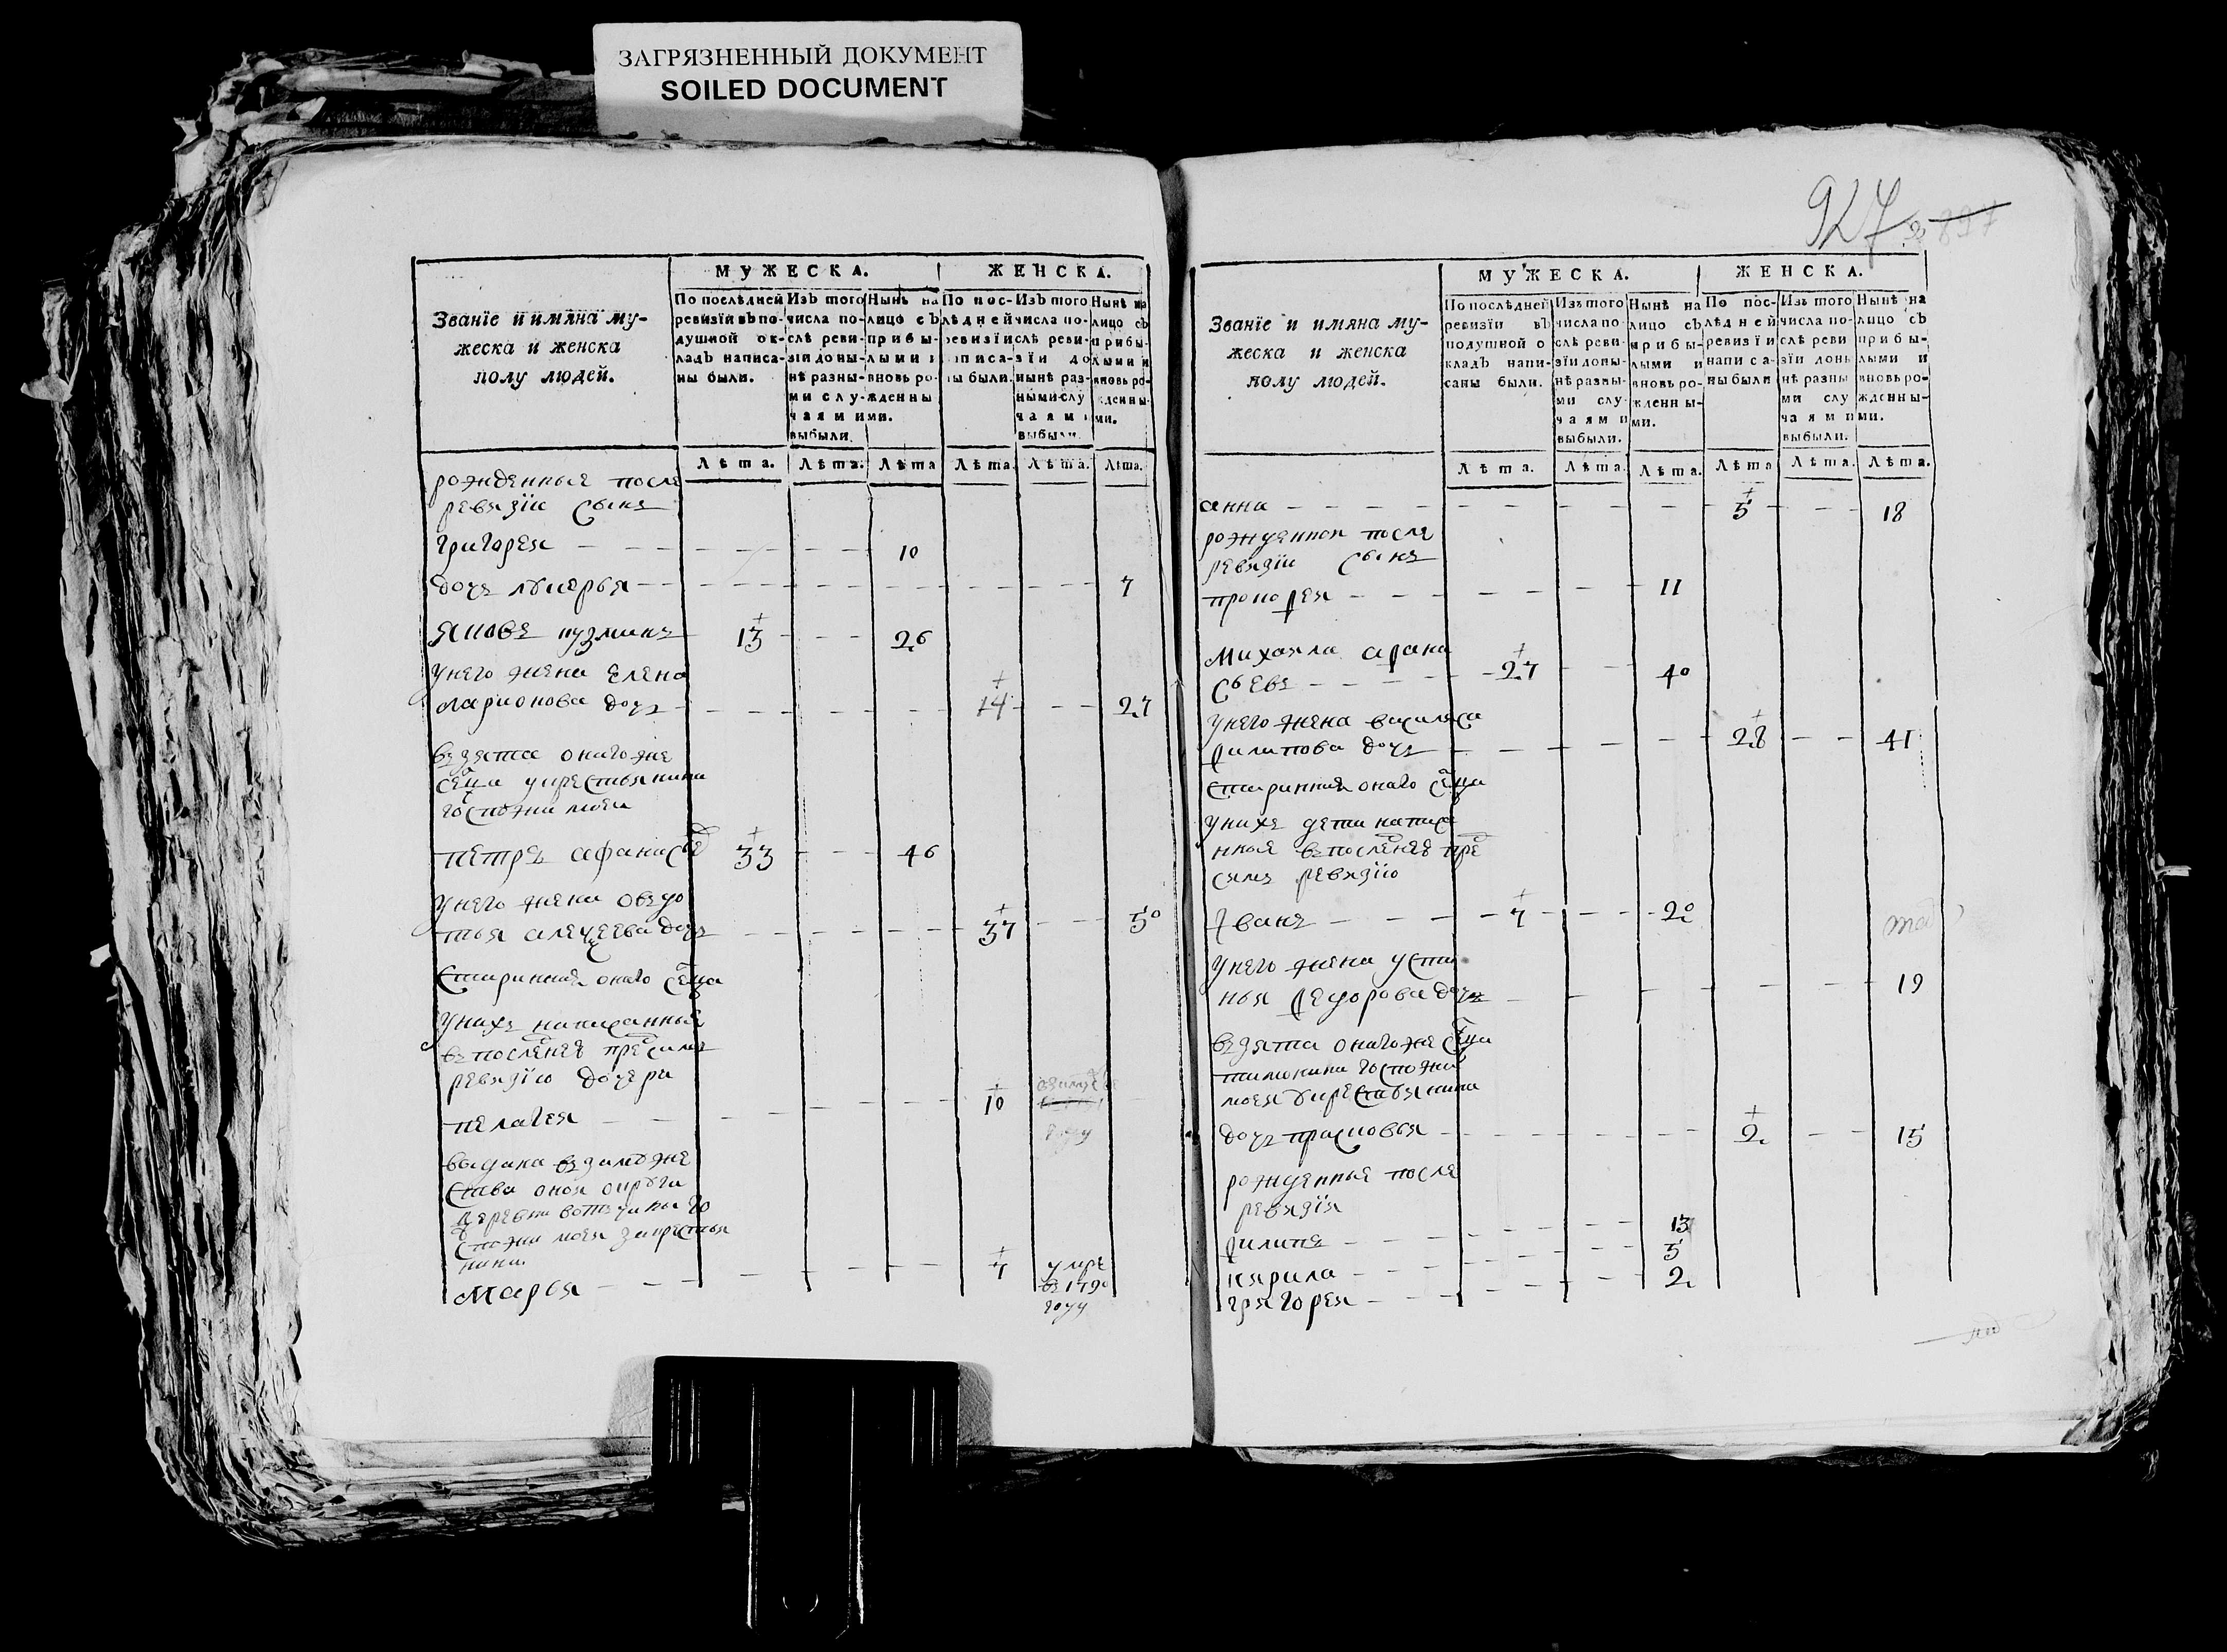 ЗАГРЯЗНЕННЫЙ ДОКУМЕНТ
SOILED DOCUMENT
МУЖЕСКА. ЖЕНСКА.
Званїе и имяна му-
жеска и женска
полу людей.
По послѣдней ревизїи въ по-душной ок-ладъ написа-ны были.
Изъ того числа по-слѣ реви-зїи доны-нѣ разны-ми слу-чаями выбыли.
Нынѣ на лицо съ прибы-лыми и вновь ро-жденны-ми.
По пос-лѣдней ревизїи написа-ны были.
Изъ того числа по-слѣ реви-зїи до нынѣ раз-ными слу-чаями выбыли.
Нынѣ на лицо съ прибы-лыми и вновь ро-жденны-ми.
Лѣта. Лѣта. Лѣта. Лѣта. Лѣта. Лѣта.
рожденные после
ревизїи сынъ
григореи 10
дочь лукерья 7
яковъ кузминъ 13 26
у него жена елена
ларионова дочь 14 27
взята онаго же
сельца у крестьянина
госпожи моеи
петръ афанасье 33 46
у него жена овдо
тья алеѯеева дочь 37 50
старинная онаго сельца
у нихъ написанные
в последнеѣ пред симъ
ревизїю дочери
пелагея 10
году
выдана в замуже
ства онои округи
деревни вотчины го
спожи моеи за крестья
нина
Марья 7 умре
въ 1790
году
927
897
МУЖЕСКА. ЖЕНСКА.
Званїе и имяна му-
жеска и женска
полу людей.
По послѣдней ревизїи въ подушной о кладъ напи-саны были.
Изъ того числа по-слѣ реви-зїи доны-нѣ разны-ми слу-чаями выбыли.
Нынѣ на лицо съ прибы-лыми и вновь ро-жденны-ми.
По пос-лѣдней ревизїи написа-ны были
Изъ того числа по-слѣ реви зїи доны нѣ разны ми слу чаями выбыли.
Нынѣ на лицо съ прибы-лыми и вновь ро-жденны-ми.
Лѣта. Лѣта. Лѣта. Лѣта Лѣта. Лѣта.
анна 5 18
рожденнои после
ревизїи сынъ
прокофеи 11
Михаила афана
сьевъ 27 40
у него жена василиса
филипова дочь 28 41
старинная онаго сельца
у нихъ дети написа
нные в последнеѣ пред
симъ ревизїю
Иванъ 7 20
у него жена усти
нья федорова дочь 19
взята онаго же сельца
госпожи
моеи у крестьянина
дочь прасковья 2 15
рожденные после
ревизїи
филипъ 13
кирила 5
григореи 2